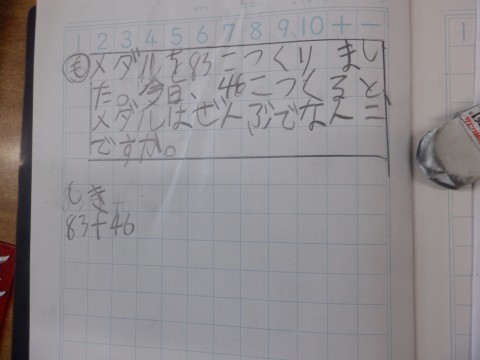 1 2 3 4 5 6 7 8 9 10 + −
も メダルを83こつくりまし
た。今日、46こつくると、
メダルはぜんぶでなんこ
ですか。
しき
83+46
1